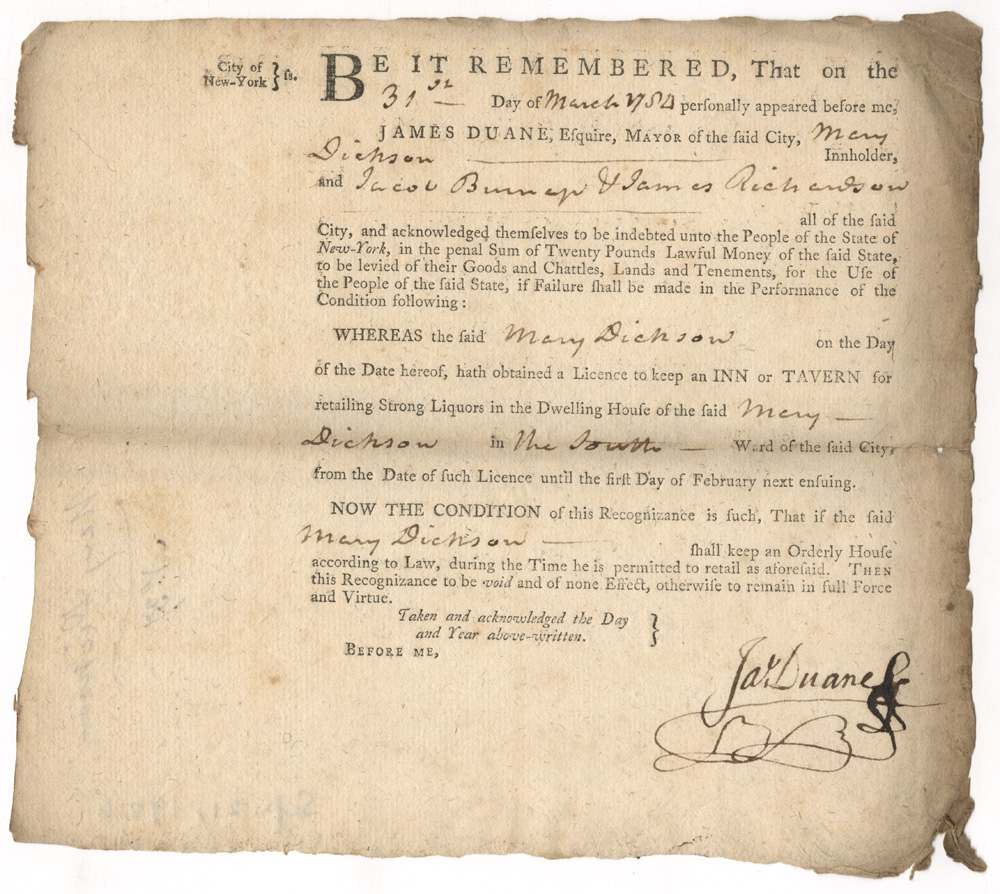 City of
New-York } ſs.
BE IT REMEMBERED, That on the
31st Day of March 1784 personally appeared before me,
JAMES DUANE, Eſquire, MAYOR of the ſaid City, Mary
Dickson Innholder,
and Jacob Burnap & James Richardson
all of the ſaid
City, and acknowledged themſelves to be indebted unto the People of the State of
New-York, in the penal Sum of Twenty Pounds Lawful Money of the ſaid State,
to be levied of their Goods and Chattles, Lands and Tenements, for the Uſe of
the People of the ſaid State, if Failure ſhall be made in the Performance of the
Condition following:
WHEREAS the ſaid Mary Dickson on the Day
of the Date hereof, hath obtained a Licence to keep an INN or TAVERN for
retailing Strong Liquors in the Dwelling Houſe of the ſaid Mary
Dickson in the South Ward of the ſaid City,
from the Date of ſuch Licence until the firſt Day of February next enſuing.
NOW THE CONDITION of this Recognizance is ſuch, That if the ſaid
Mary Dickson ſhall keep an Orderly Houſe
according to Law, during the Time he is permitted to retail as aforeſaid. THEN
this Recognizance to be void and of none Effect, otherwiſe to remain in full Force
and Virtue.
Taken and acknowledged the Day
and Year above-written. }
BEFORE ME,
Jas. Duane